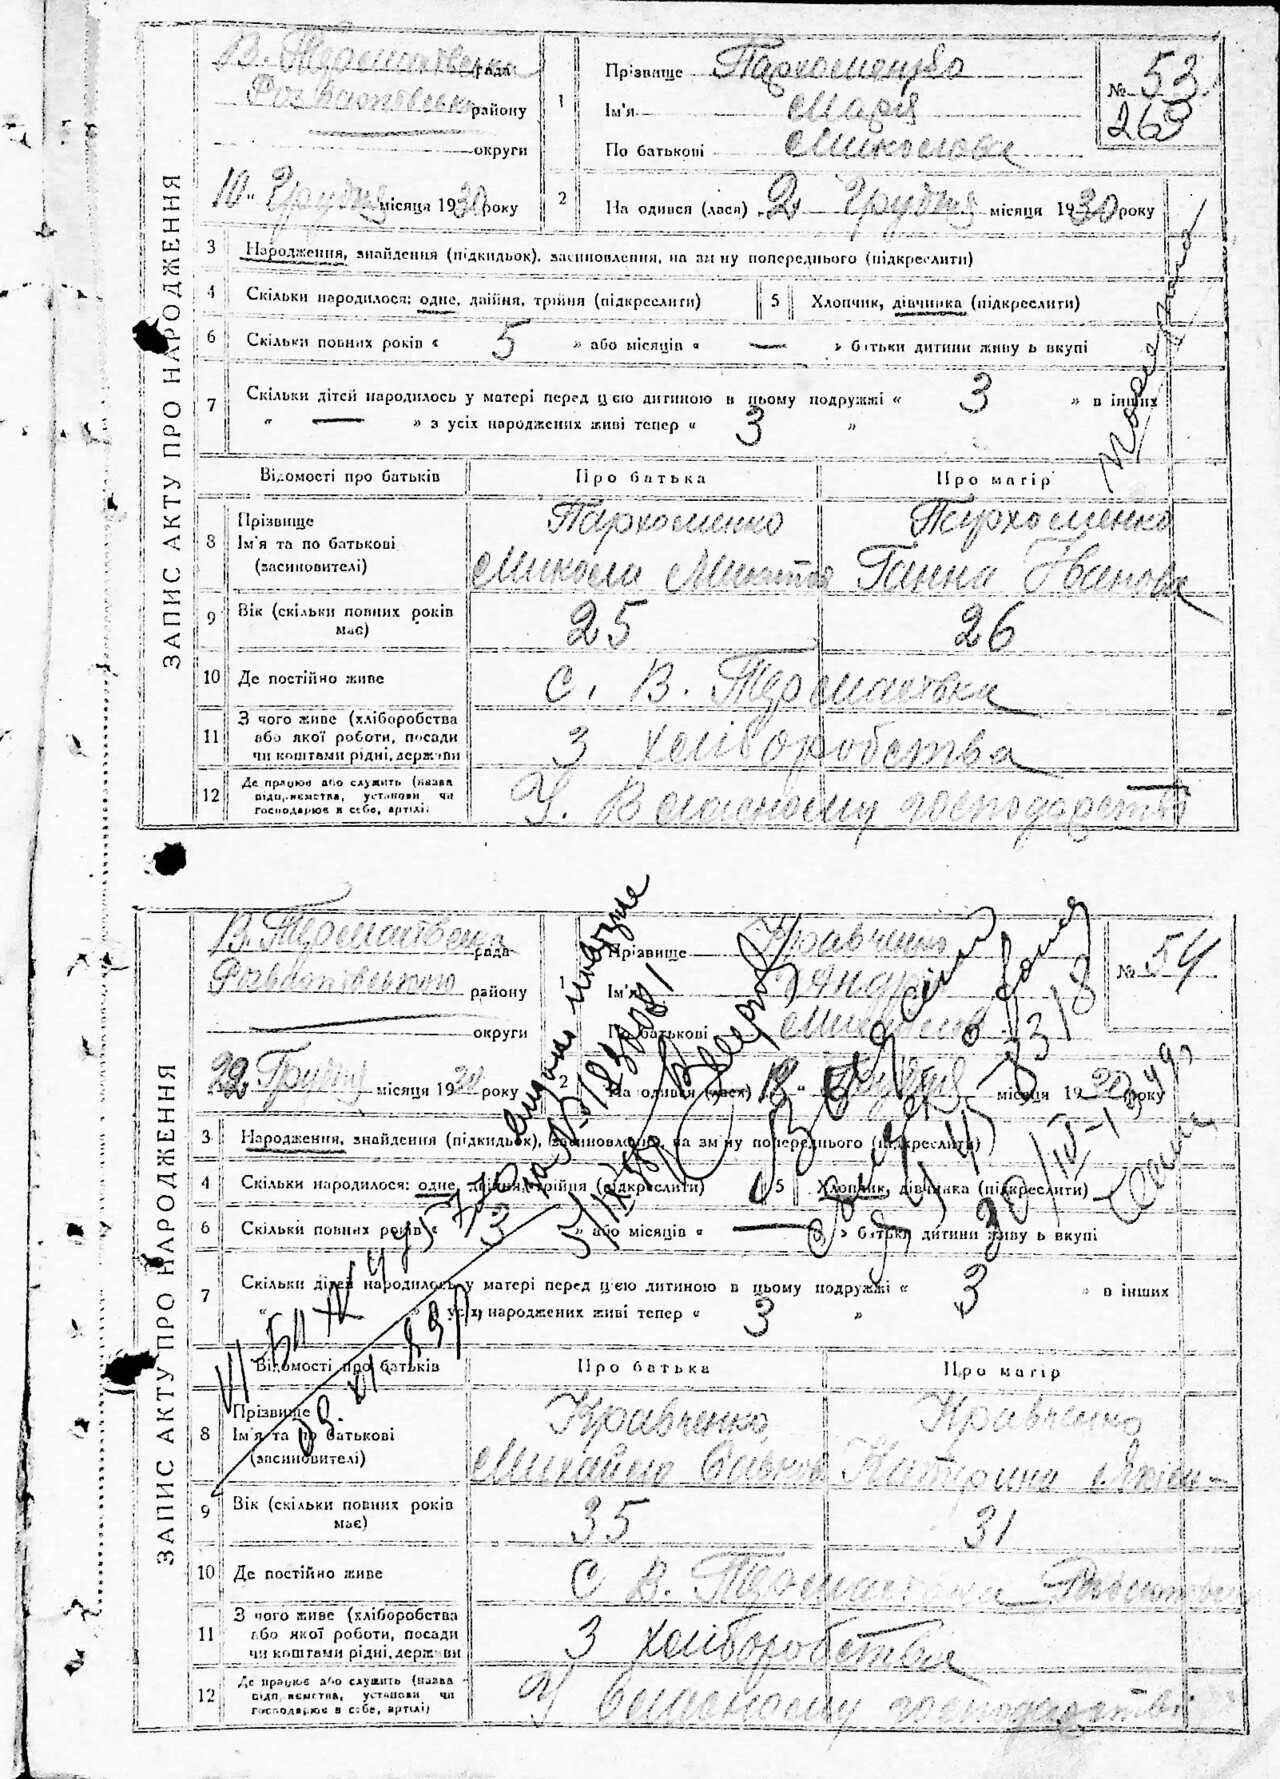 ЗАПИС АКТУ ПРО НАРОДЖЕННЯ
В. Термахівська рада
Розважівського району
округи
"10" Грудня місяця 1930 року
1
Прізвище Пархоменко
Ім'я Марія
По батькові Миколова
№ 53
263
2
На одився (лася) "2" Грудня місяця 1930 року
3 Народження, знайдення (підкидьок), засиновлення, на зм ну попереднього (підкреслити)
4 Скільки народилося: одне, двійня, трійня (підкреслити)
5 Хлопчик, дівчинка (підкреслити)
6 Скільки повних років « 5 » або місяців « — » батьки дитини живу ь вкупі
7 Скільки дітей народилось у матері перед цією дитиною в цьому подружжі « 3 » в інших
« — » з усіх народжених живі тепер « 3 »
Відомості про батьків Про батька Про матір
8 Прізвище
Ім'я та по батькові
(засиновителі)
Пархоменко
Микола
Пархоменко
Ганна Іванова
9 Вік (скільки повних років має) 25 26
10 Де постійно живе С. В. Термахівка
11 З чого живе (хліборобства
або якої роботи, посади
чи коштами рідні, держави
З хліборобства
12 Де працює або служить (назва
підприємства, установи чи
господарює в себе, артілі)
У Власному господарстві
ЗАПИС АКТУ ПРО НАРОДЖЕННЯ
В. Термахівська рада
Розважівського району
округи
"22" Грудня місяця 1930 року
1
Прізвище Кравченко
Ім'я
По батькові
№ 54
2
На одився (лася) "18" Грудня місяця 1930 року
3 Народження, знайдення (підкидьок), засиновлення, на зм ну попереднього (підкреслити)
4 Скільки народилося: одне, двійня, трійня (підкреслити)
5 Хлопчик, дівчинка (підкреслити)
6 Скільки повних років « 3 » або місяців « — » батьки дитини живу ь вкупі
7 Скільки дітей народилось у матері перед цією дитиною в цьому подружжі « 3 » в інших
« » з усіх народжених живі тепер « 3 »
Відомості про батьків Про батька Про матір
8 Прізвище
Ім'я та по батькові
(засиновителі)
Кравченко
Михайло Савков
Кравченко
Катерина
9 Вік (скільки повних років має) 35 31
10 Де постійно живе С В. Термахівка
11 З чого живе (хліборобства
або якої роботи, посади
чи коштами рідні, держави
З хліборобства
12 Де працює або служить (назва
підприємства, установи чи
господарює в себе, артілі)
У власному господарстві